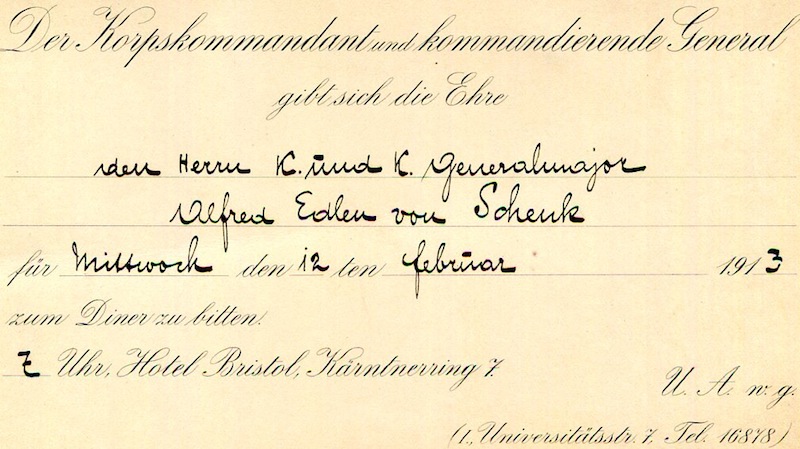 Der Korpskommandant und kommandierende General
gibt sich die Ehre
den Herrn K. und K. Generalmajor
Alfred Edlen von Schenk
für Mittwoch den 12 ten februar 1913
zum Diner zu bitten.
7 Uhr, Hotel Bristol, Kärntnerring 7.
U. A. w. g.
(1., Universitätsstr. 7, Tel. 16878)